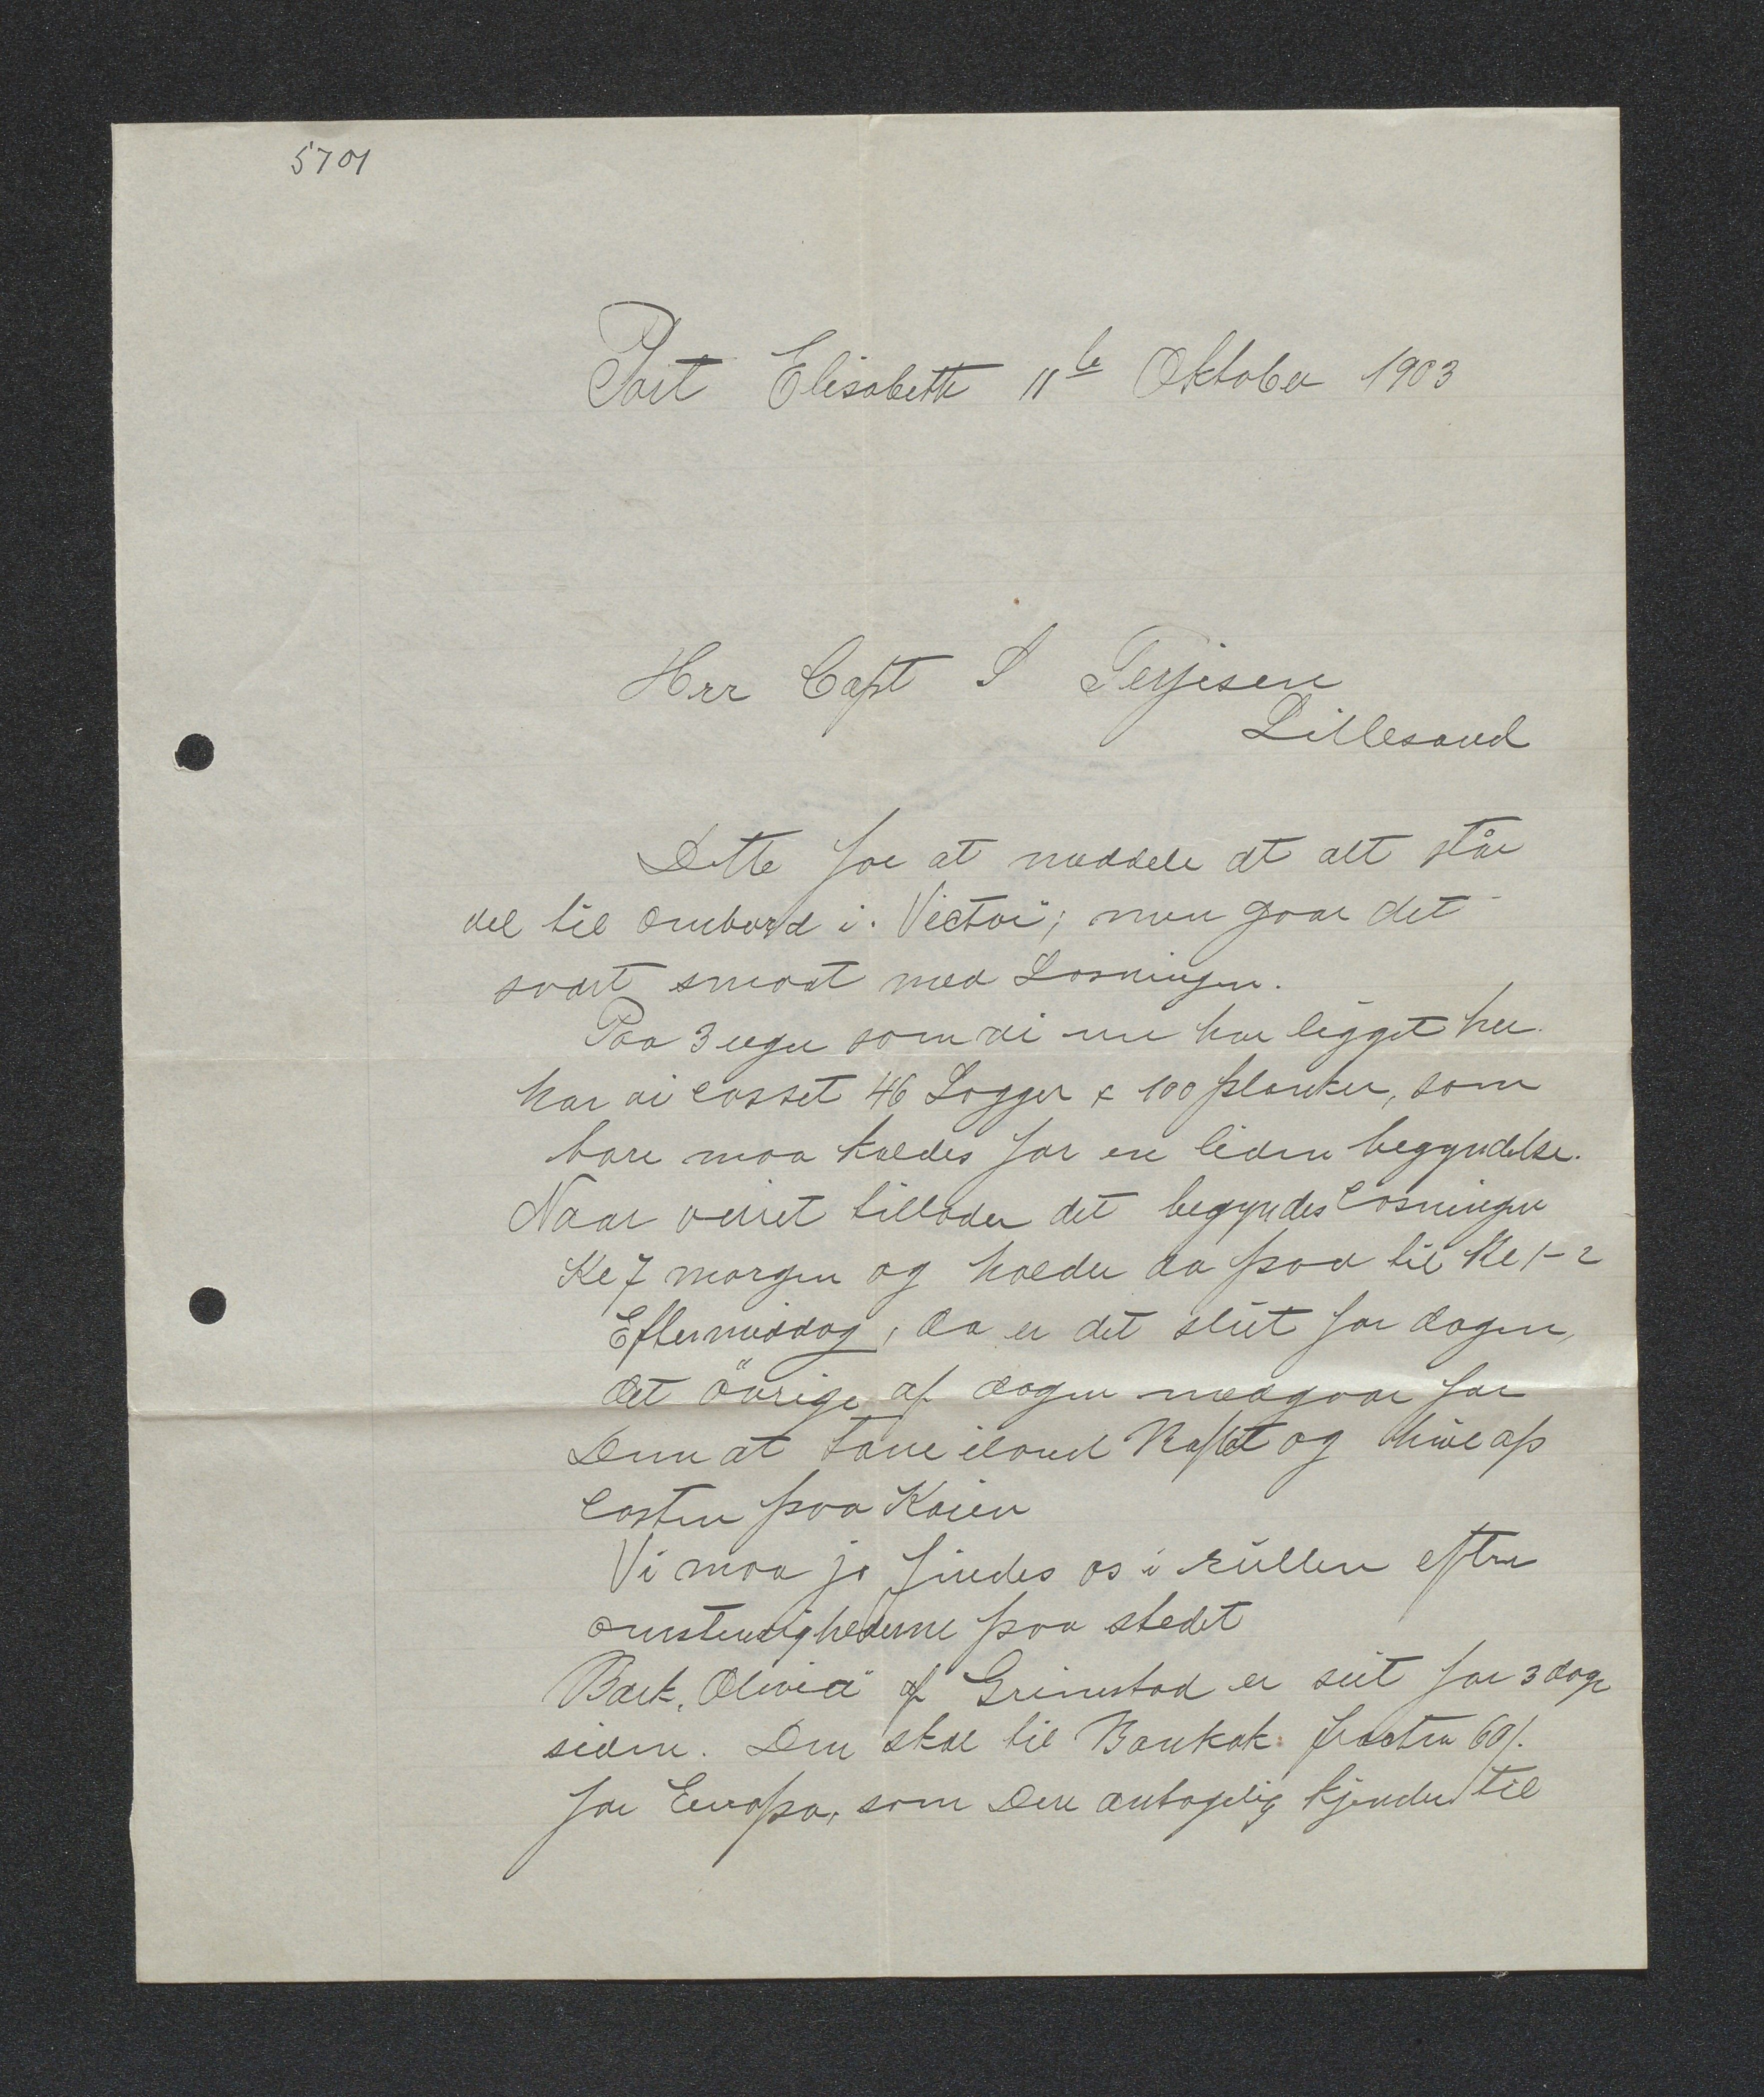 5701
Port Elisabeth 11te Oktober 1903
Herr Capt S Terjesen
Lillesand
Dette for at meddele at alt står
vel til ombord i "Victor"; men gaar det
svært smaat med Losningen.
Paa 3 uger som vi nu har ligget her
har vi losset 46 Logger & 100 planker, som
bare maa kaldes for en liden begyndelse.
Naar veiret tillader det begyndes losningen
Kl 7 morgen og holder da paa til Kl 1-2
Eftermiddag, da er det slut for dagen,
det övrige af dagen medgaar for
Dem at taue iland Raftet og hive op
lasten paa Kaien
Vi maa jo findes os i rullen efter
omstendighederne paa stedet
Bark "Olivia" af Grimstad er seilt for 3 dage
siden. Den skal til Bankok fragten 60/.
for Europa, som De antagelig kjender til